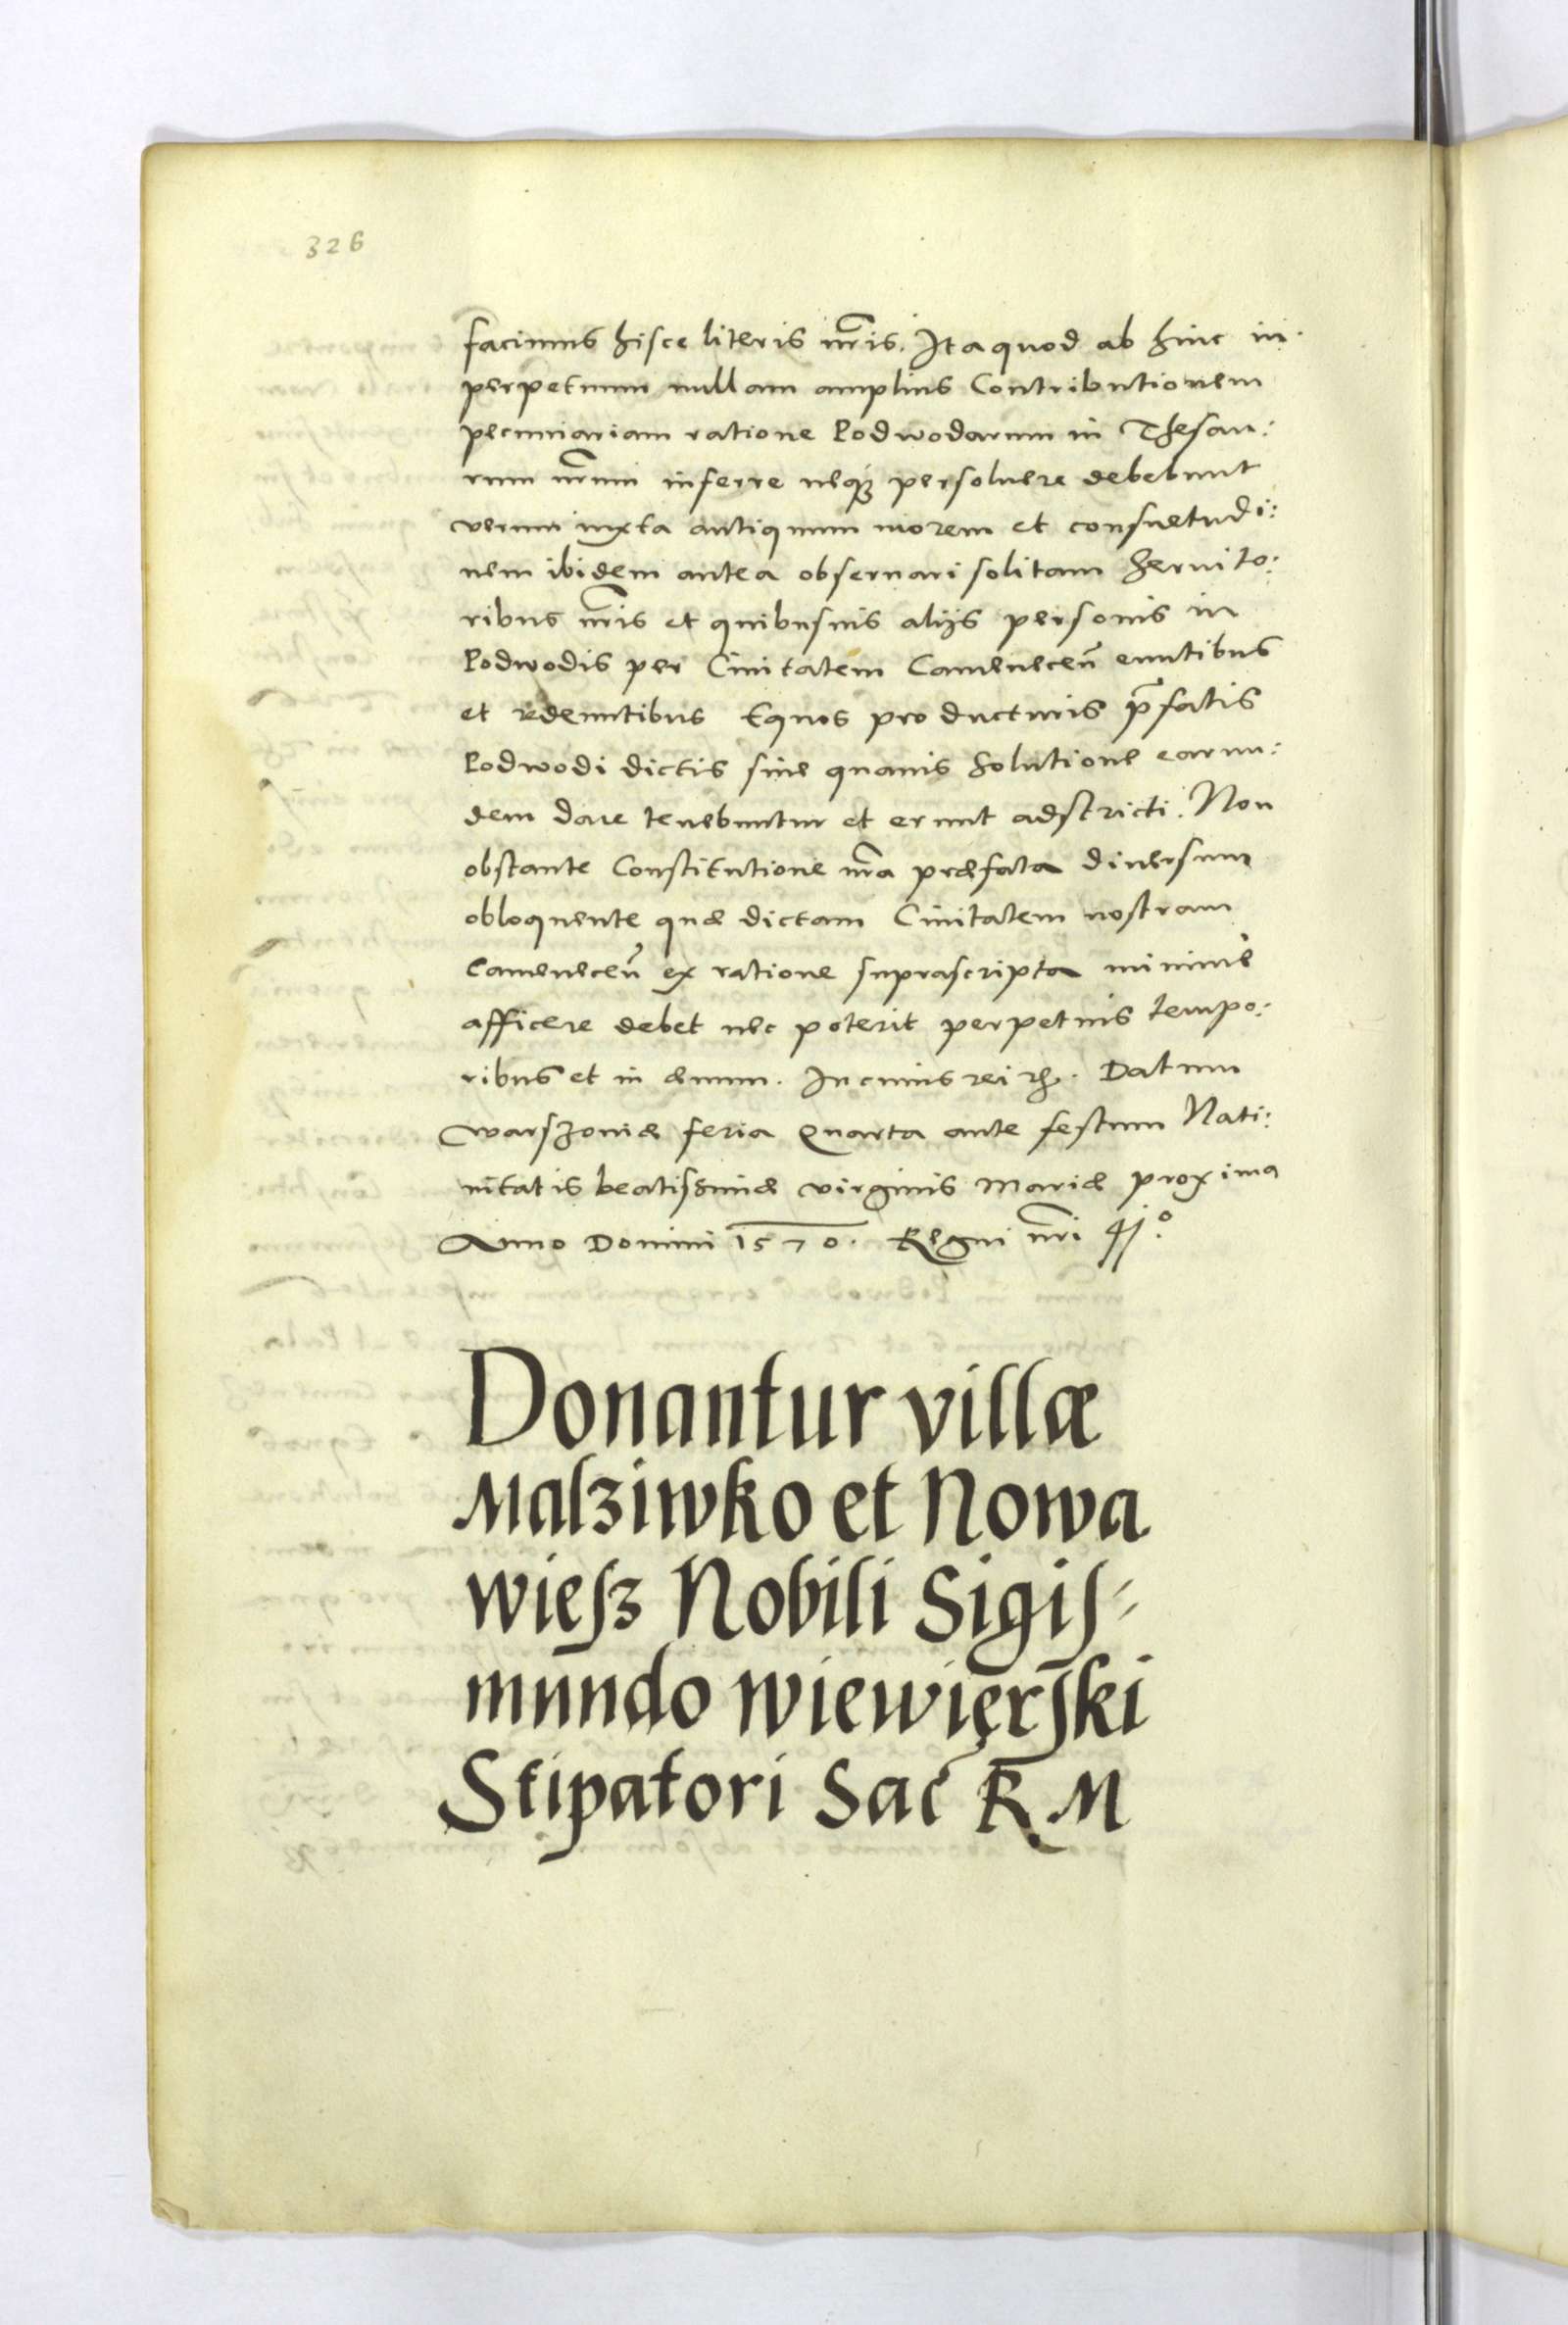 326
facimus hisce literis nr̃is. Ita quod ab hinc in
perpetuum nullam amplius Contributionem
pecuniariam ratione Podwodarum in Thesau:
rum nr̃um inferre neqꝫ persoluere debebunt
verum iuxta antiquum morem et consuetudi:
nem ibidem antea obseruari solitam seruito:
ribus nr̃is et quibusuis alijs personis in
Podwodis per Ciuitatem Camenecen̄ euntibus
et redeuntibus Equos pro ducturis p̃fatis
Podwodi dictis sine quauis solutione earun:
dem dare tenebuntur et erunt adstricti. Non
obstante Constitutione nr̃a præfata diuersum
obloquente quæ dictam Ciuitatem nostram
Camenecen̄ ex ratione suprascripta minimè
afficere debet nec poterit perpetuis tempo:
ribus et in æuum. In cuius rei ꝛc. Datum
Warszouiæ feria Quarta ante festum Nati:
uitatis beatissimæ virginis Mariæ proxima
Anno Domini 1570. Regni nr̃i 41º.
Donantur villæ
Malziwko et Nowa
wiesz Nobili Sigis-
mundo Wiewięrski
Stipatori Sac̃ R M